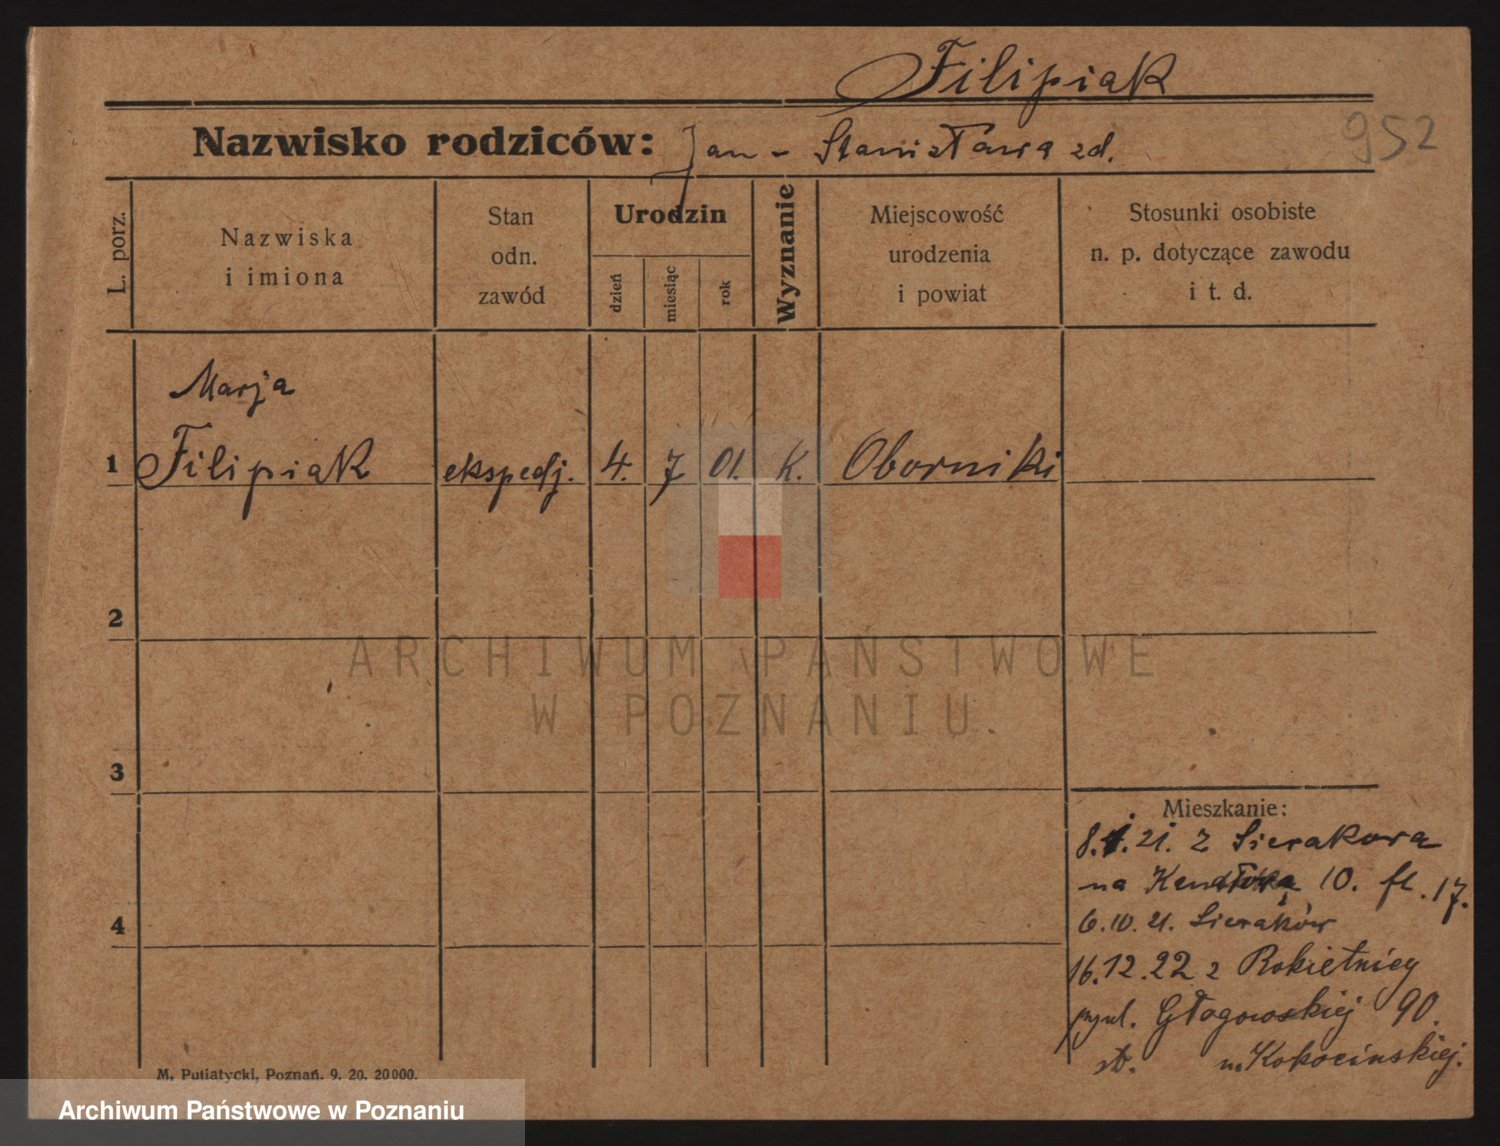 Filipiak
Nazwisko rodziców: Jan - Stanisława zd.
952
L. porz.
Nazwiska
i imiona
Stan
odn.
zawód
Urodzin
dzień
miesiąc
rok
Wyznanie
Miejscowość
urodzenia
i powiat
Stosunki osobiste
n. p. dotyczące zawodu
i t. d.
Marja
1 Filipiak ekspedj. 4. 7 01. k. Oborniki
2
ARCHIWUM PAŃSTWOWE
W POZNANIU
3
Mieszkanie:
21. z Sierakowa
na 10. fl. 17.
6.10.21. Sieraków
4
16.12.22 z Rokietnicy
Głogowskiej 90.
u Kokocińskiej.
M. Putiatycki, Poznań. 9. 20. 20000.
Archiwum Państwowe w Poznaniu